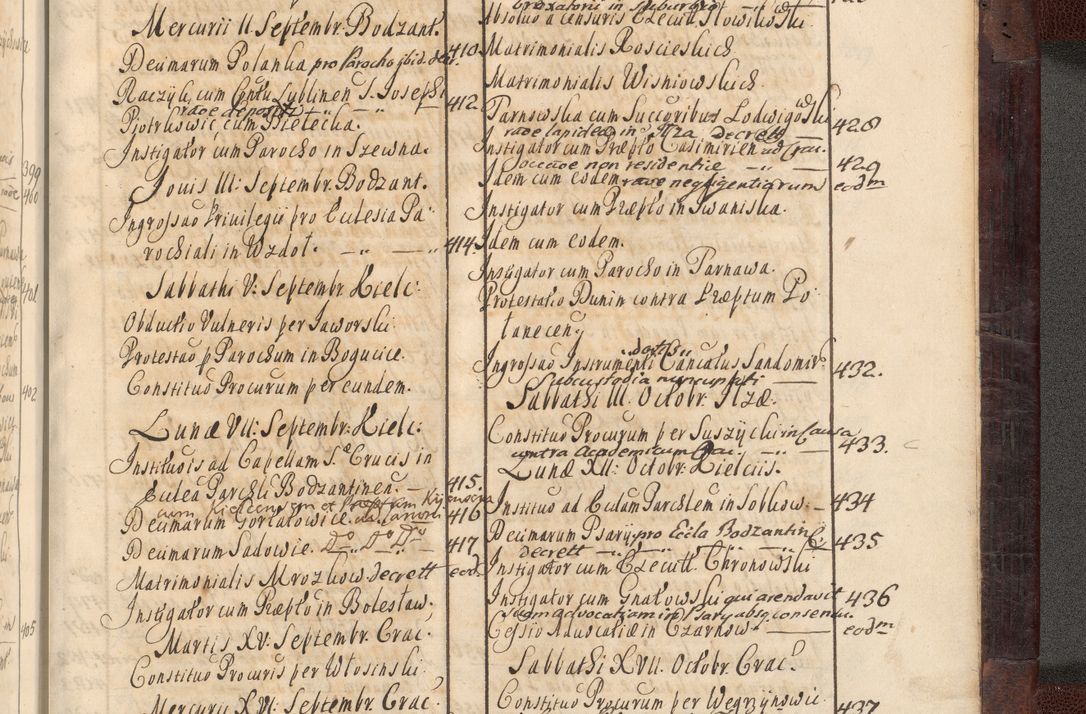 Mercurii II. Septembr. Bodzant.
Decimarum Polanka pro Parocho ibid. decr. 410.
Raczyk cum Lublinen S. Josephi 412.
raoe depositi
Piotrkowic cum Bielecka.
Instigator cum Parocho in Szewna.
Jouis III: Septembr. Bodzant.
Ingrossao Privilegii pro Eculesia Pa
rochiali in Wzdoł. 414.
Sabbathi V: Septembr. Kielc.
Obductio Vulneris per Jaworski.
Protestao p Parochum in Bogucice.
Constituo Procurum per eundem.
Lunæ VII: Septembr. Kielc:
Instituois ad Capellam S. Crucis in
Eculea Parchli Bodzantinen. 415.
cum Kielcensem et
Decimarum Gorcatowice. 416
Decimarum Sadowie. Do Do Do 417
Matrimonialis Mrozkow decrett eod.
Instigator cum Præpto in Bolesław.
Martis XV: Septembr. Crac.
Constituo Procuris per Włosinski.
Mercurii XVI: Septembr. Crac.
Absoluo a censuris Execut. Słowikowski.
Matrimonialis Koscieskich
Matrimonialis Wisniowskich.
Parnowska cum Succoribus Lodwigowski
raoe lapidea in Ilza decrett 428
Instigator cum Præpto Casimirien ad Crac.
occaoe non residentiæ 429
Idem cum eodem raoe negligentiarum eodm
Instigator cum Præpto in Iwaniska.
Idem cum eodem.
Instigator cum Parocho in Parnawa.
Protestatio Dunin contra Præptum Po
łanecen
Ingrossao Instrumenti Cancatus Sandomir 432.
Subcustodia nuncupati
Sabbathi III. Octobr. Ilzæ.
Constituo Procurum per Suszycki in Causa
contra Academicum Crac. 433.
Lunæ XII: Octobr. Kielciis.
Instituo ad Eculam Parchlem in Sobkow 434
Decimarum Psary pro Eccla Bodzantin
decrett 435
Instigator cum Execut. Chronowski
Instigator cum Gnatowski qui arendavit 436
suam advocatiam in Psary absq. consensu
Cessio Aduocatiæ in Czarnow eodm
Sabbathi XVII. Octobr. Crac.
Constituo Procurum per Węgrzynowic 437
399
400
401
402
405